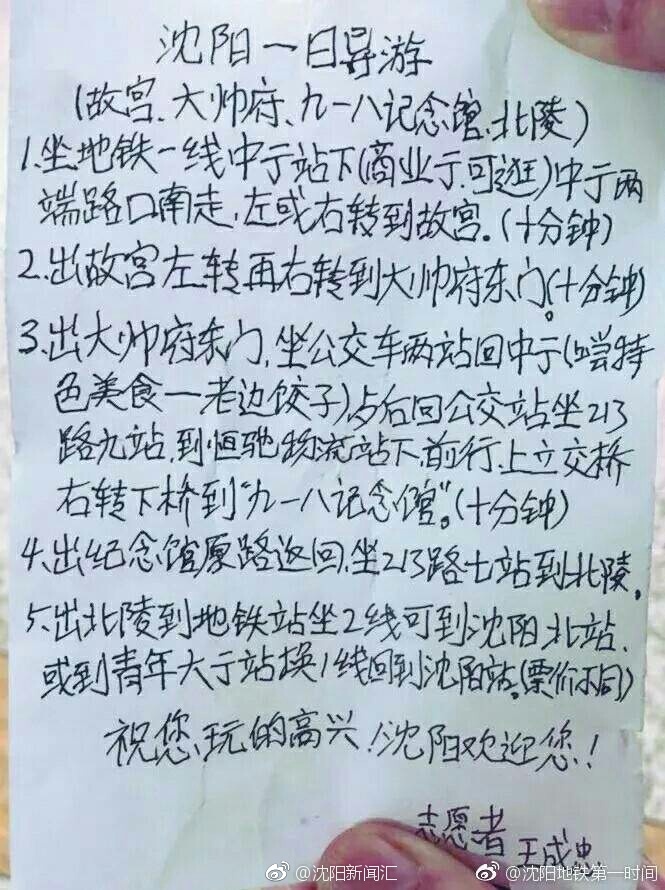 沈阳一日导游
(故宫、大帅府、九一八记念馆、北陵)
1.坐地铁一线中亍站下(商业亍可逛)中亍两
端路口南走,左或右转到故宫。(十分钟)
2.出故宫左转再右转到大帅府东门。(十分钟)
3.出大帅府东门,坐公交车两站回中亍(尝特
色美食—老边饺子)后回公交站坐213
路九站,到恒驰物流站下,前行,上立交桥
右转下桥到“九一八记念馆”。(十分钟)
4.出纪念馆原路返回,坐213路七站到北陵。
5.出北陵到地铁站坐2线可到沈阳北站,
或到青年大亍站换1线回到沈阳站。(票价不同)
祝您玩的高兴!沈阳欢迎您!
志愿者 王成忠
@沈阳新闻汇 @沈阳地铁第一时间